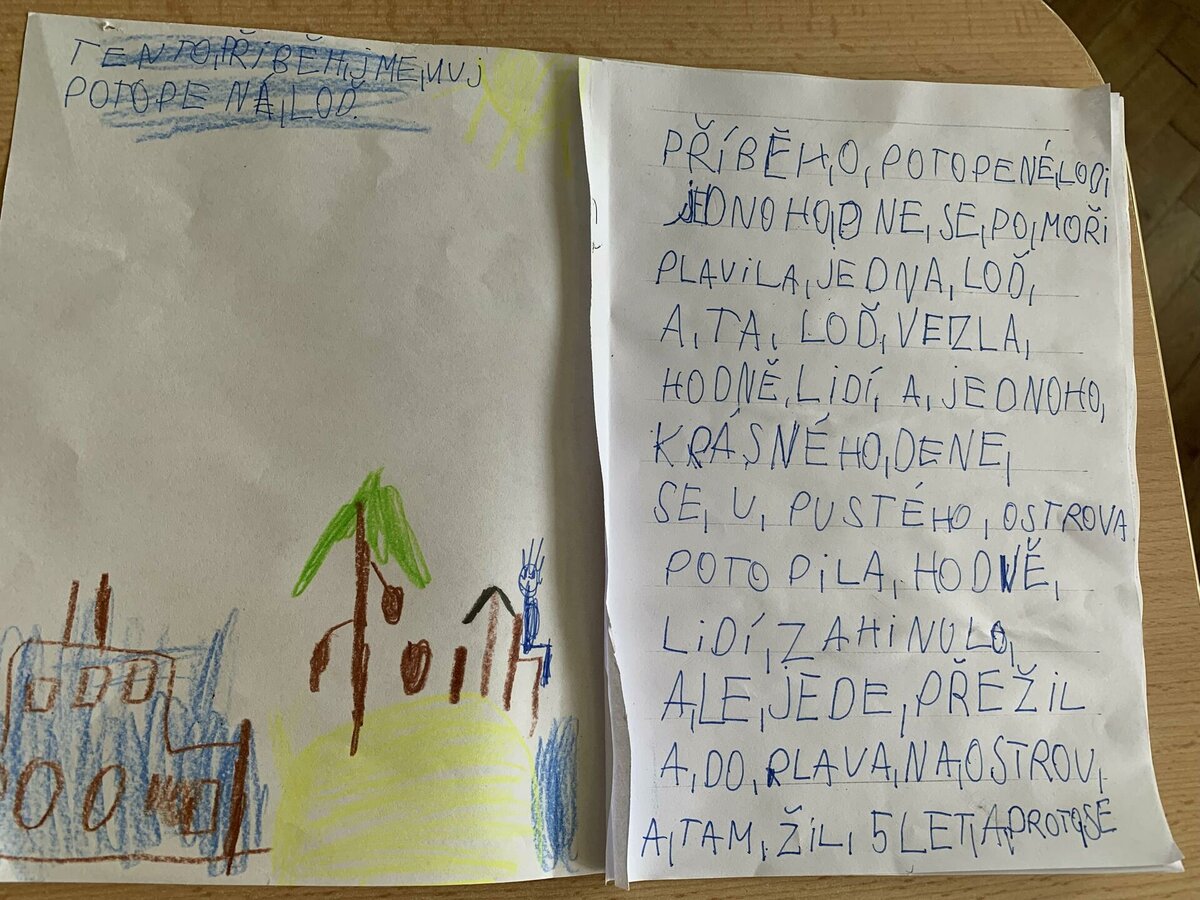 TENTO,PŘÍBĚH,jME,NUJ
POTOPENÁ,LOĎ.
PŘÍBĚH,O,POTOPENÉ,LODI
JEDNOHO,DNE,SE,PO,MOŘI
PLAVILA,JEDNA,LOĎ,
A,TA,LOĎ,VEZLA,
HODNĚ,LIDÍ,A,JEDNOHO,
KRÁSNÉHO,DENE,
SE,U,PUSTÉHO,OSTROVA
POTOPILA,HODNĚ,
LIDÍ,ZAHINULO,
ALE,JEDE,PŘEŽIL
A,DO,PLAVA,NA,OSTROV,
A,TAM,ŽIL,5LET,A,PROTO,SE